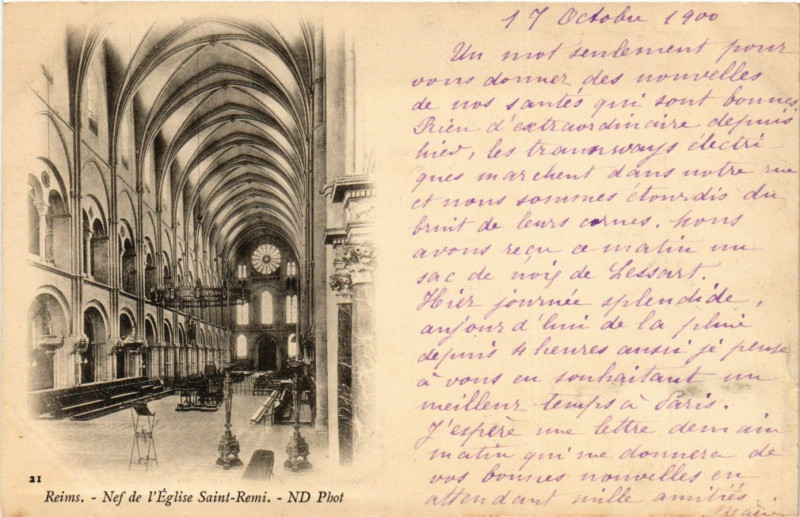 17 Octobre 1900
Un mot seulement pour
vous donner des nouvelles
de nos santés qui sont bonnes.
Rien d'extraordinaire depuis
hier, les tramways électri
ques marchent dans notre rue
et nous sommes étourdis du
bruit de leurs cornes. Nous
avons reçu ce matin un
sac de noix de Lessart.
Hier journée splendide,
aujourd'hui de la pluie
depuis 4 heures aussi je pense
à vous en souhaitant un
meilleur temps à Paris.
J'espère une lettre demain
matin qui me donnera de
vos bonnes nouvelles en
attendant mille amitiés
21
Reims. - Nef de l'Église Saint-Remi. - ND Phot